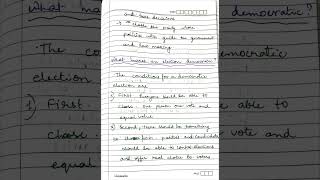 and laws decisions
the party whose
politics who guide the government
and law making
What makes an election democratic?
The conditions for a democratic
election are
1) First, Everyone should be able to
choose. One person one vote and
equal value.
2) Second, there should be something
to choose parties and candidates
should be able to contest elections
and offer real choice to voters.
democratic?
The co
ocratic
election
1) First
able to
choos
vote and
equal